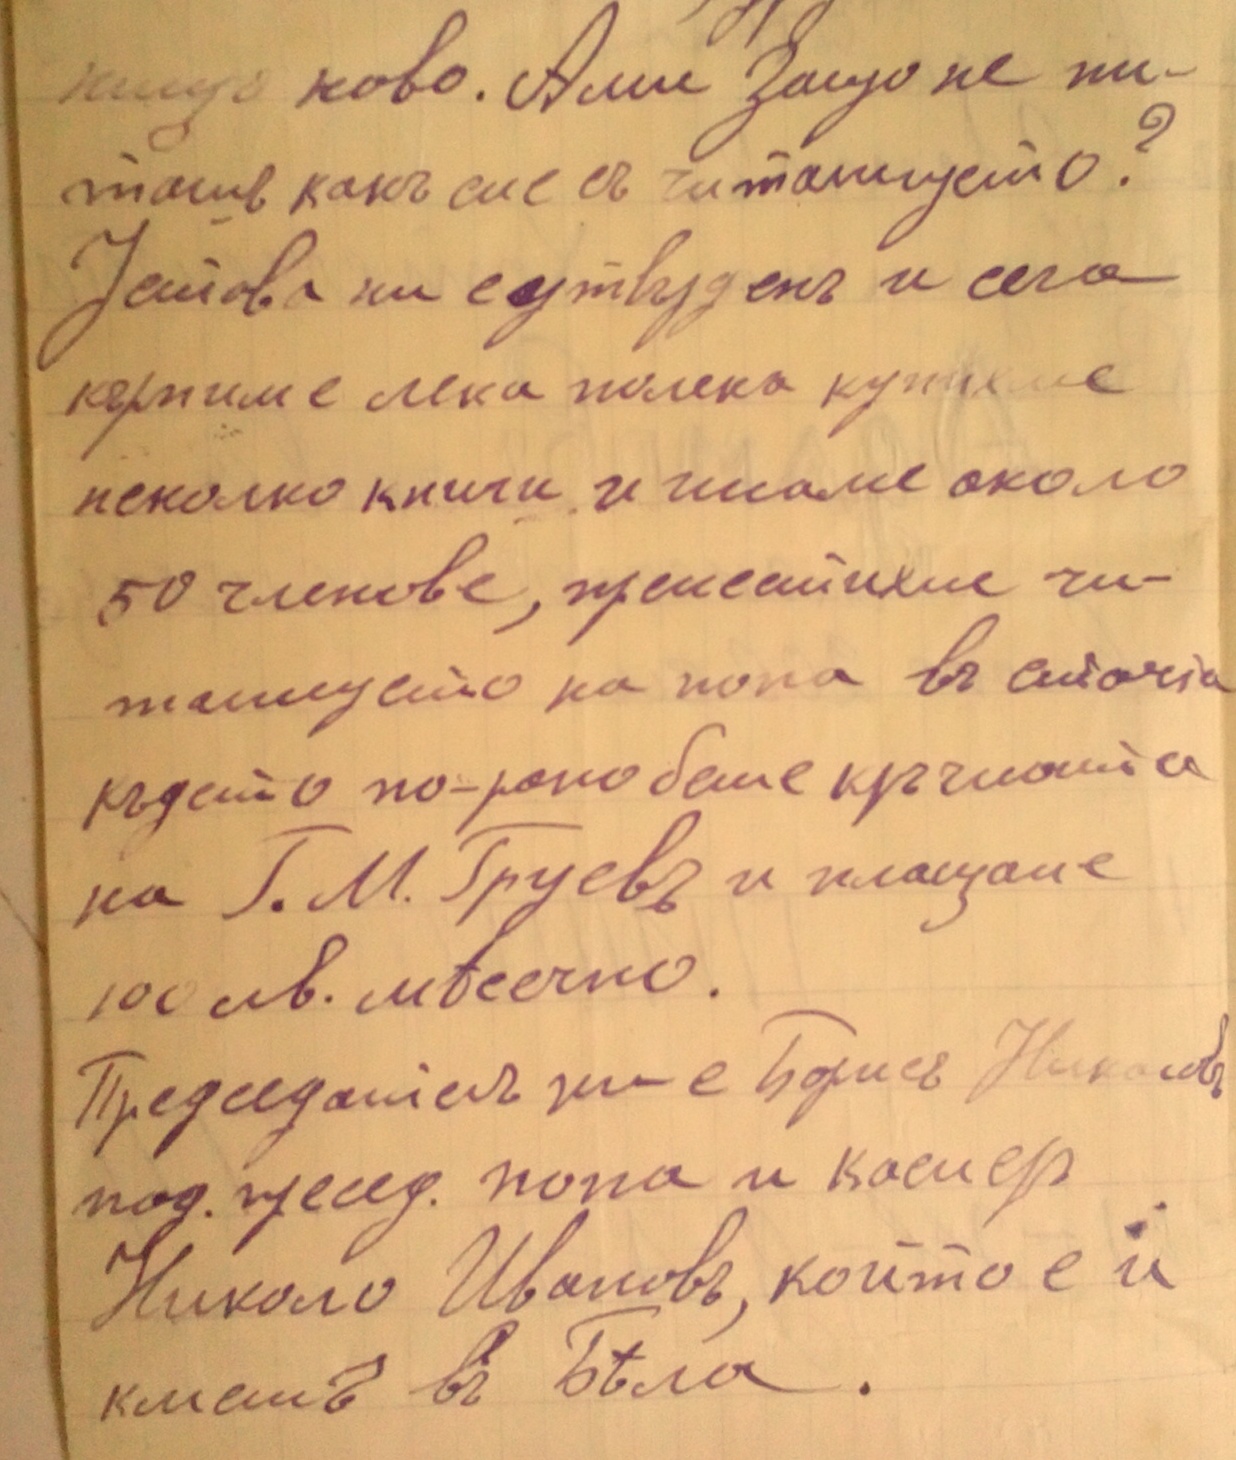 нищо ново. Ами Защо не пи-
ташъ какъ сме съ читалището?
Устова ни е утвърденъ и сега
кърпиме лека полека купихме
неколко книги и имаме около
50 членове, преместихме чи-
талището на попа въ стаята
където по-рано беше кръчмата
на Г. М. Груевъ и плащаме
100 лв. мѣсечно.
Председателъ ни е Борисъ Николовъ
под. председ. попа и касиер
Николо Ивановъ, който е и
кметъ въ Бѣла.